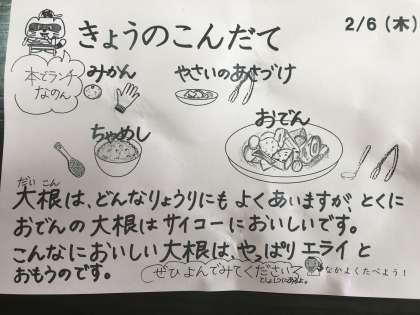 きょうのこんだて
2/6(木)
本でランチ
なのん。
みかん
やさいのあさづけ
ちゃめし
おでん
だいこん
大根は、どんなりょうりにもよくあいますが、とくに
おでんの大根はサイコーにおいしいです。
こんなにおいしい大根は、やっぱりエライと
おもうのです。
ぜひよんでみてください?
としょしつにあるよ。
なかよくたべよう!